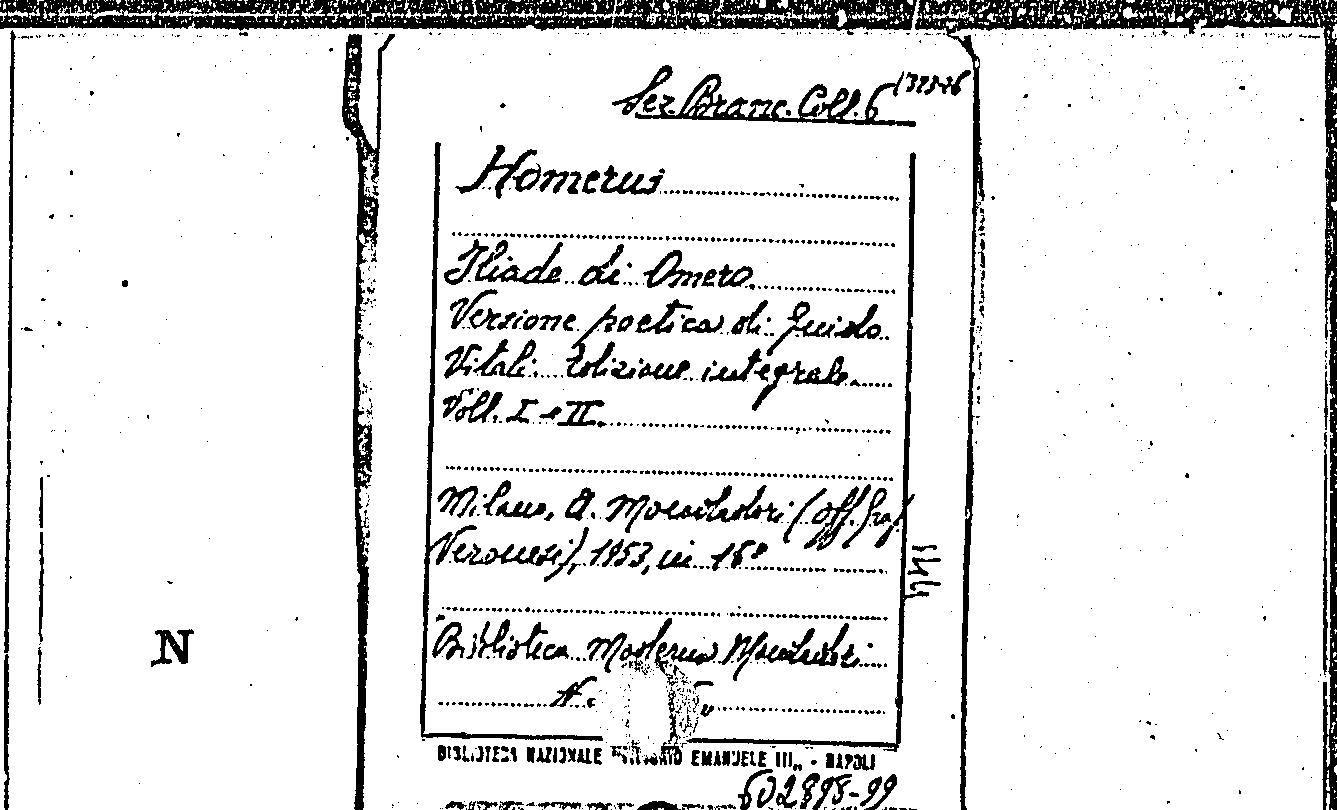 Sez. Branc. Coll. 6 1373-76
Homerus
Iliade di Omero.
Versione poetica di Guido
Vitali. Edizione integrale.
Voll. I e II.
Milano, A. Mondadori (Off. Graf.
Veronesi), 1953, in 16°
Biblioteca Moderna Mondadori
N.
N
BIBLIOTECA NAZIONALE "VITTORIO EMANUELE III„ - NAPOLI
602898-99